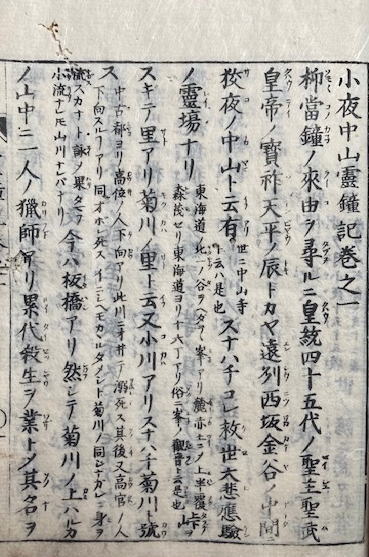 小夜中山靈鐘記巻之一
抑當鐘ノ來由ヲ尋ルニ皇統四十五代ノ聖主聖武
皇帝ノ寳祚天平ノ辰トカヤ遠列西坂金谷ノ中間
攷夜ノ中山ト云有世ニ中山寺ト云ハ是也スナハチコレ救世大悲應驗
ノ靈場ナリ東海道此二ノ谷ヲヘダテヽ峯アリ麓赤土ニノ上半覆森茂セリ東海道ヨリ十六丁アリ俗ニ峯ノ觀音ト云是也山峠ヲ
スギテ里アリ菊川ノ里ト云又小川アリスナハチ菊川ト號
ス中古都ヨリ高位ノ人下向アリ此川ニ於テ溺死ス其後又高官ノ人下向スルフアリ同オホレ死スイニシヘモカヽルタメシト菊川ノ同シナガレニ身ヲ
流スカナト詠ノ果タマフ小流ナレ𪜈山川ナレバナリ今ハ板橋アリ然シテ菊川ノ上ハルカ
ノ山中ニ一人ノ獵師アリ累代殺生ヲ業トメ其名ヲ